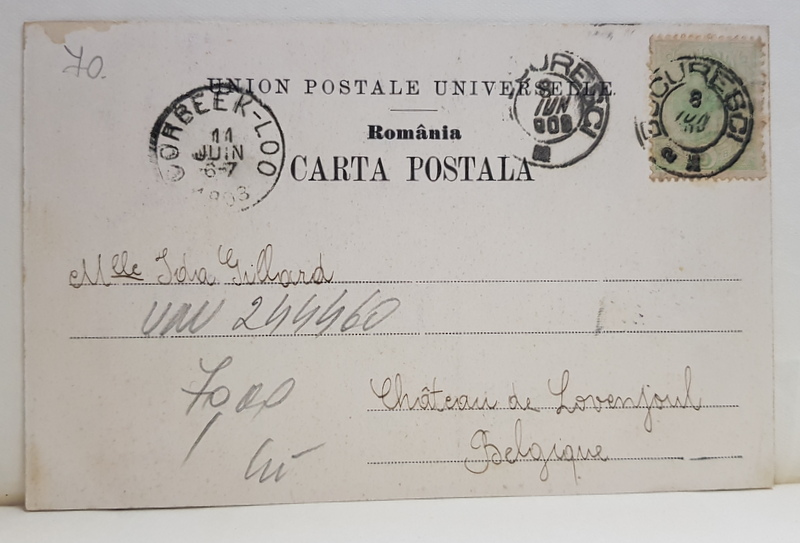 70.
UNION POSTALE UNIVERSELLE
România
CARTA POSTALA
CORBEEK-LOO
11
JUIN
6-7
BUCURESCI
8
IUN
BUCURESCI
8
IUN
Mlle Ida Gillard
244460
Château de Lovenjoul
Belgique